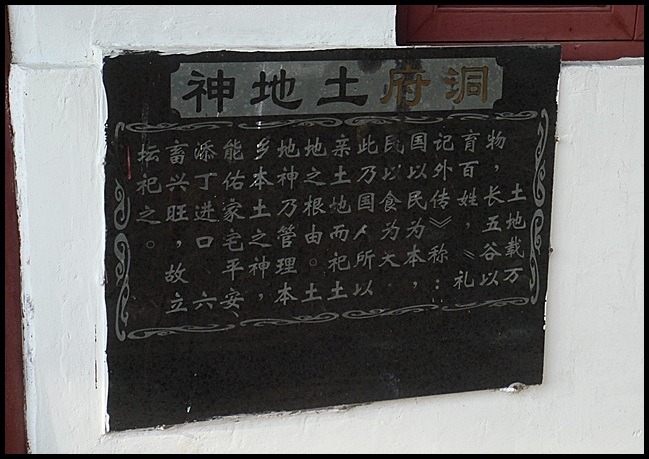 洞府土地神
土地载万
物，长五谷以
育百姓，《礼
记外传》称：
国以民为本，
民以食为大
此乃国人所以
亲土地而祀土
地之根由。土
地神乃管理本
乡本土之神，
能佑家宅平安
添丁进口 六
畜兴旺，故立
坛祀之。